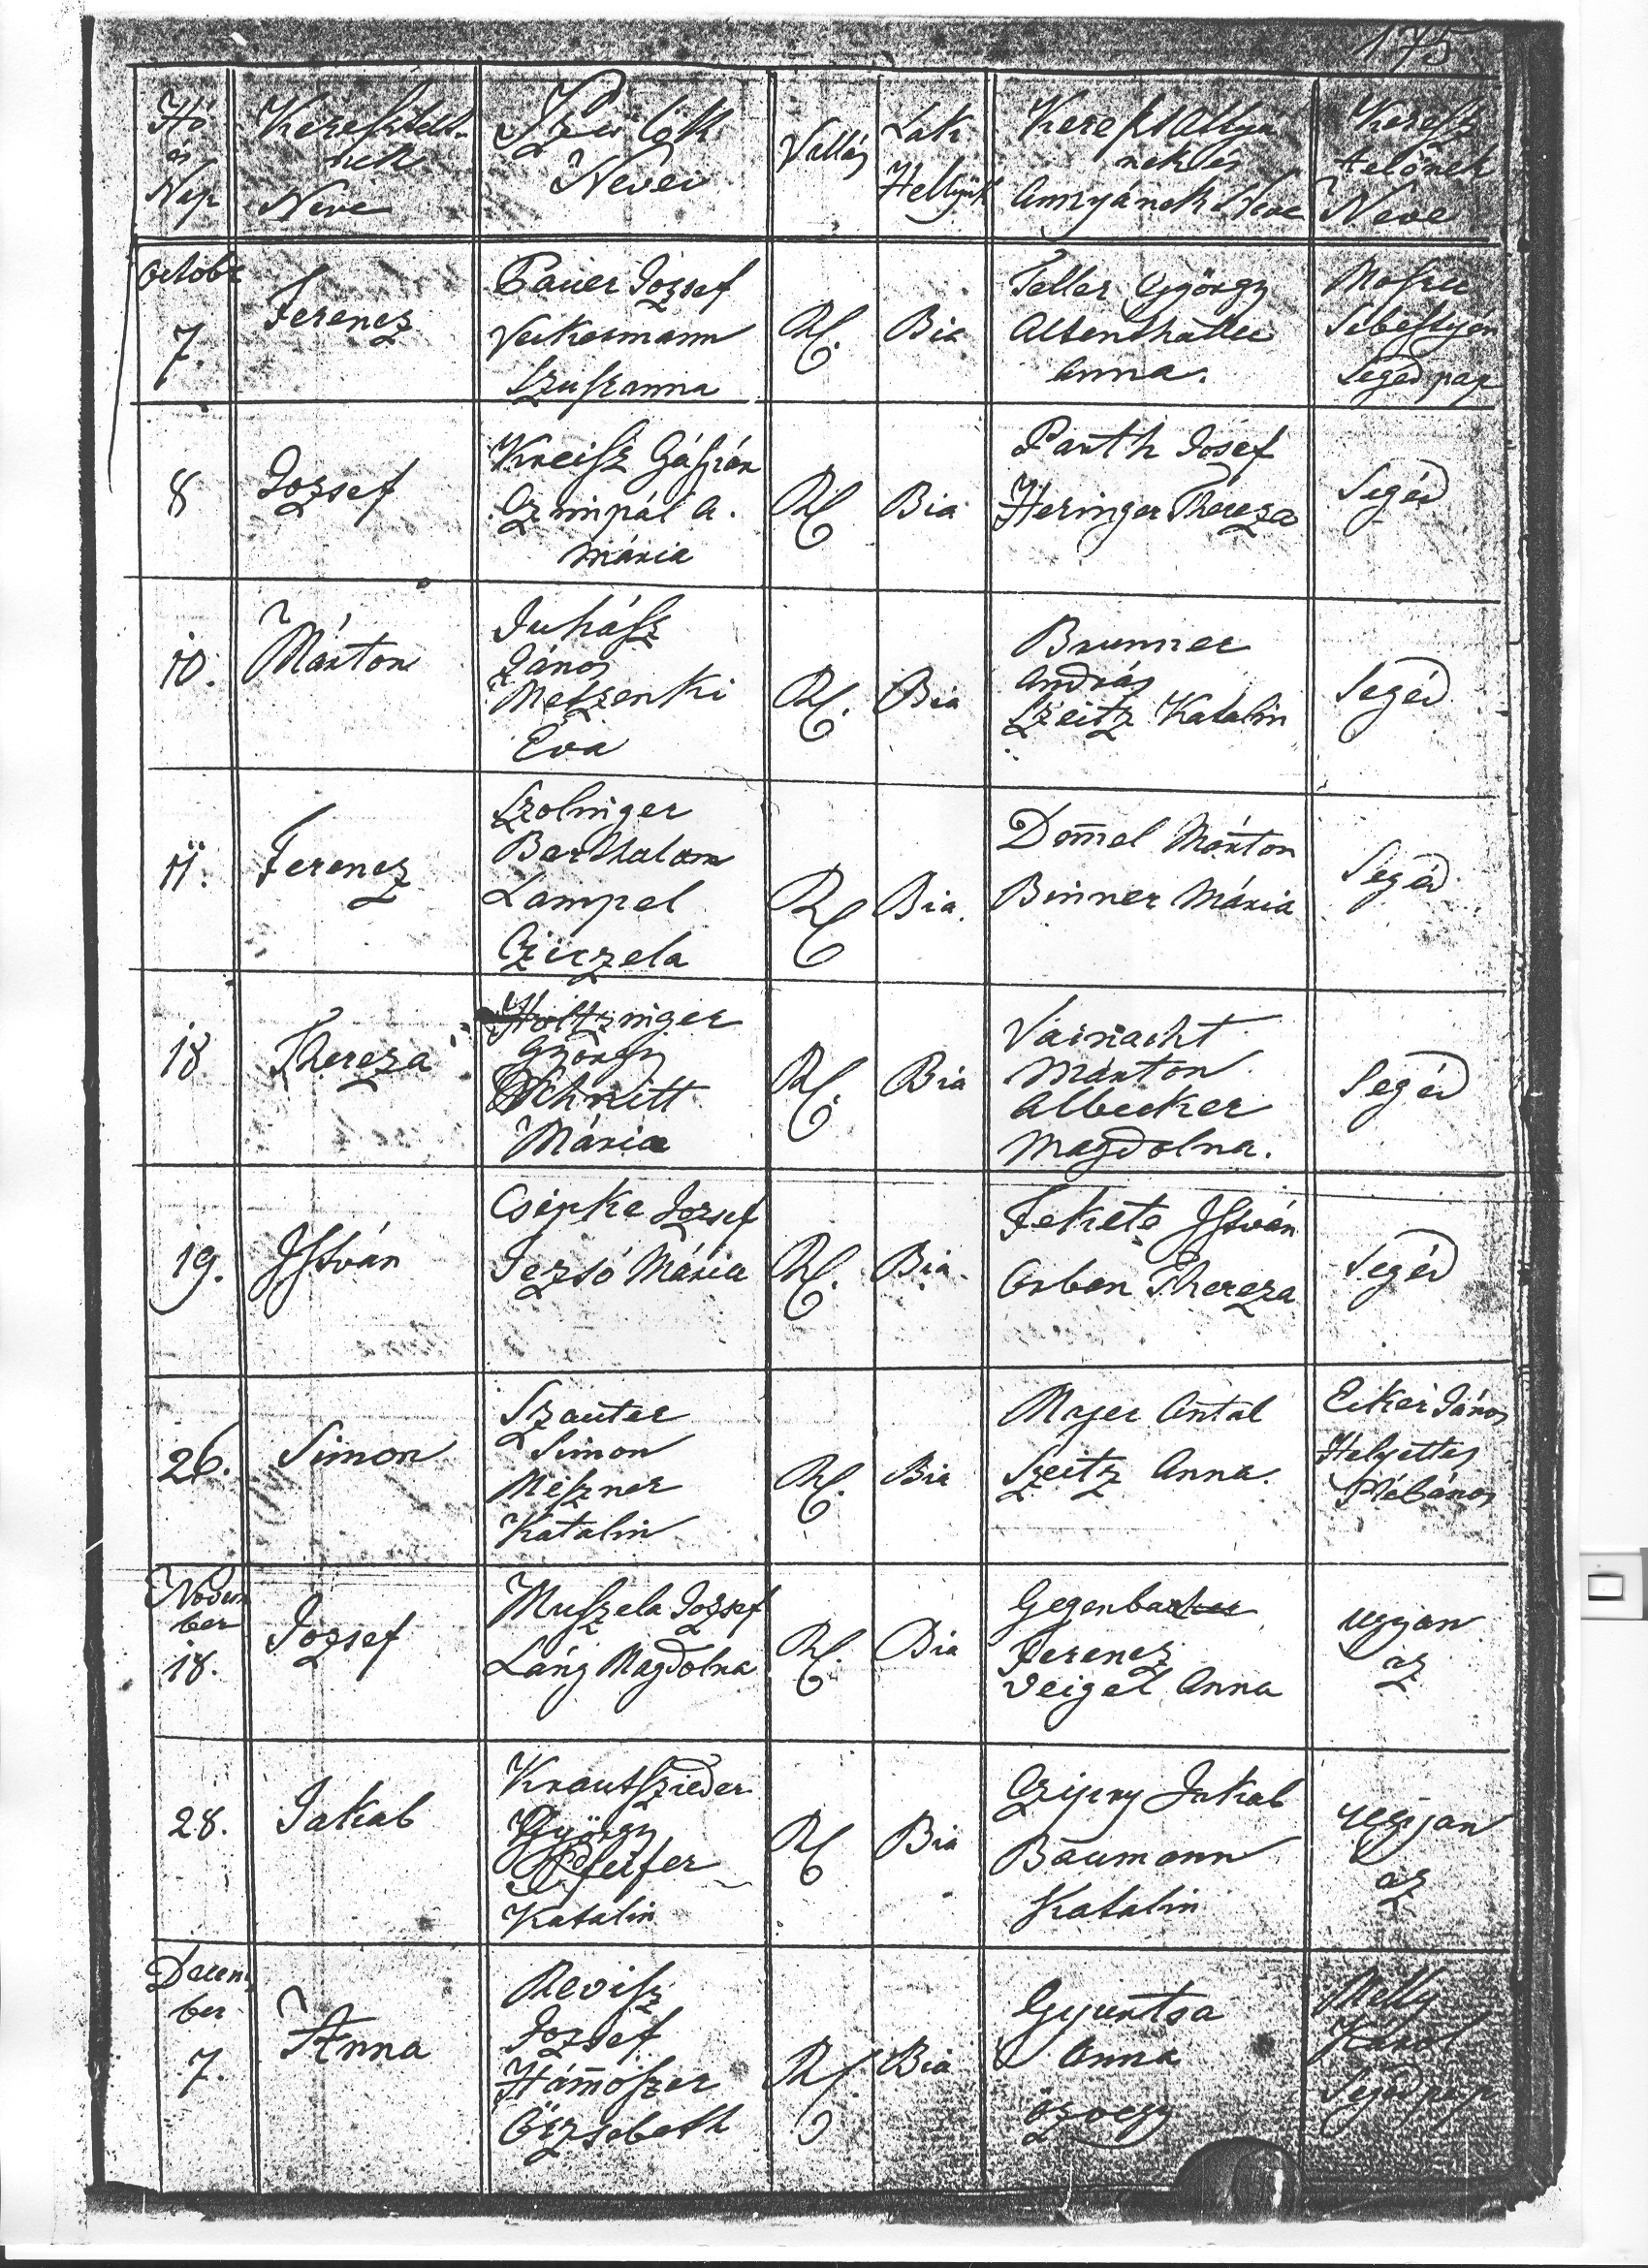 175
Hó
és
Nap
Keresztelt-
nek
Neve
Szülők
Nevei
Vallás
Lak
Hellyük
Kereszt Attyá
nek és
Annyának Neve
Keresz
telőnek
Neve
Octobr
7.
Ferencz
Pauer Jozsef
Veikermann
Szuszanna
RC.
Bia
Teller György
Anna.
Sebestyén
Segéd pap
8
Jozsef
Kreisz Gáspár
Czimpál A.
Mária
RC
Bia
Parth Josef
Heringer Théreza
Segéd
10.
Márton
Juhász
János
Meszenki
Éva
RC.
Bia
Brunner
András
Szeitz Katalin
Segéd
11.
Ferencz
Szolniger
Berthalom
Lampel
Cziczela
RC
Bia.
Dom̄el Márton
Binner Mária
Segéd
18
Thereza
Holtzniger
György
Schmitt
Mária
RC.
Bia
Vainacht
Márton
Albecker
Magdolna.
Segéd
19.
István
Csipke Jozsef
Jezsó Mária
RC.
Bia.
Fekete István
Orben Thereza
Segéd
26.
Simon
Szauter
Simon
Meszner
Katalin
RC.
Bia
Majer Antal
Szeitz Anna.
Eiker János
Helyettes
Plébános
Novem
ber
18.
Jozsef
Muszela Jozsef
Láng Magdolna
RC.
Bia
Gegenbacher
Ferencz
Veigel Anna
ugyan
az
28.
Jakab
Krautszieder
György
Pfeifer
Katalin
RC
Bia
Jakab
Baumann
Katalin
ugyan
az
Decem
ber
7.
Anna
Revisz
Jozsef
Hám̄oszer
Örzsébeth
RC.
Bia
Gyuntsa
Anna
özvegy
Melly
Károl
Segéd pap